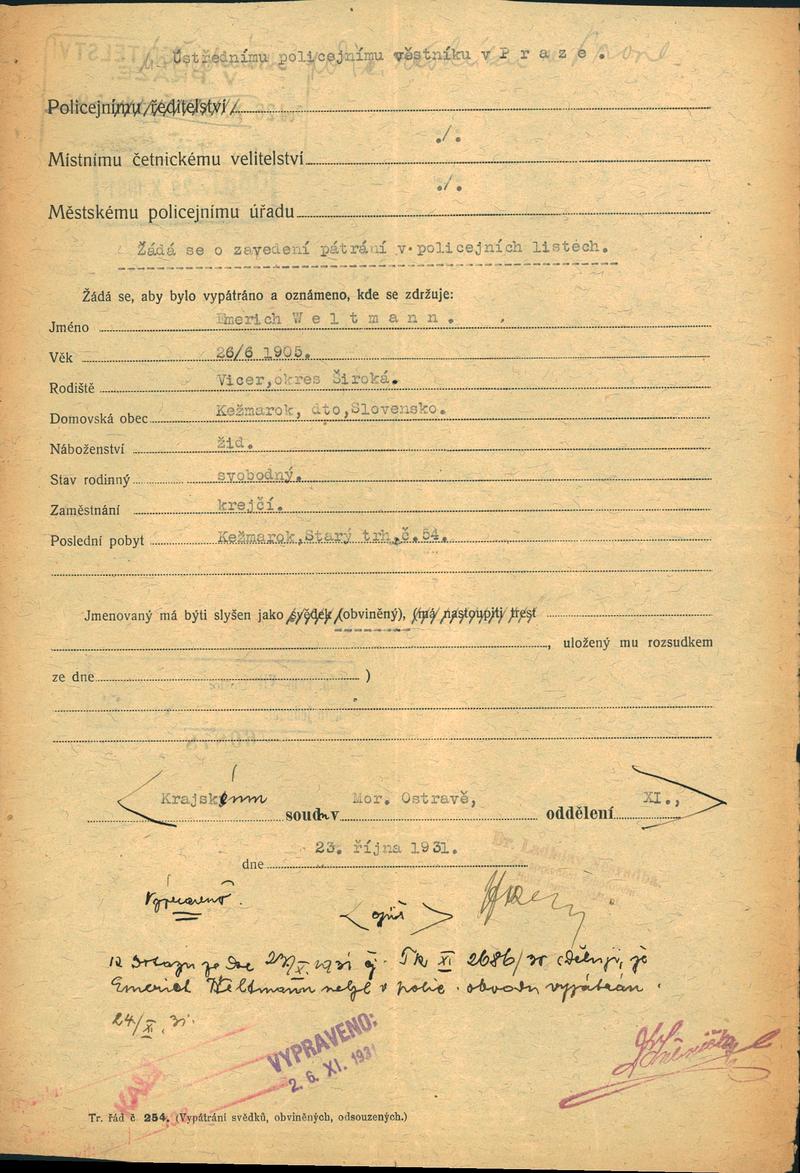 Ústřednímu policejnímu věstníku v P r a z e .
Policejnímu ředitelství
./.
Místnímu četnickému velitelství
./.
Městskému policejnímu úřadu
Žádá se o zavedení pátrání v policejních listech.
Žádá se, aby bylo vypátráno a oznámeno, kde se zdržuje:
Jméno Emerich W e l t m a n n .
Věk 26/6 1905.
Rodiště Vicer,okres Široká.
Domovská obec Kežmarok, dto,Slovensko.
Náboženství žid.
Stav rodinný svobodný.
Zaměstnání krejčí.
Poslední pobyt Kežmarok,Starý trh,č.54.
Jmenovaný má býti slyšen jako svědek (obviněný), (má nastoupiti trest
, uložený mu rozsudkem
ze dne )
Krajským soud v Mor. Ostravě, oddělení XI.,
dne 23. října 1931.
Vypraveno.
opis
K dotazu ze dne 23/X 1931 čj. Tk XI 2686/30 sděluji, že
Emerich Weltmann nebyl v polic. obvodu vypátrán.
24/XI. 31.
VYPRAVENO:
2 6. XI. 1931
Tr. řád č. 254. (Vypátrání svědků, obviněných, odsouzených.)